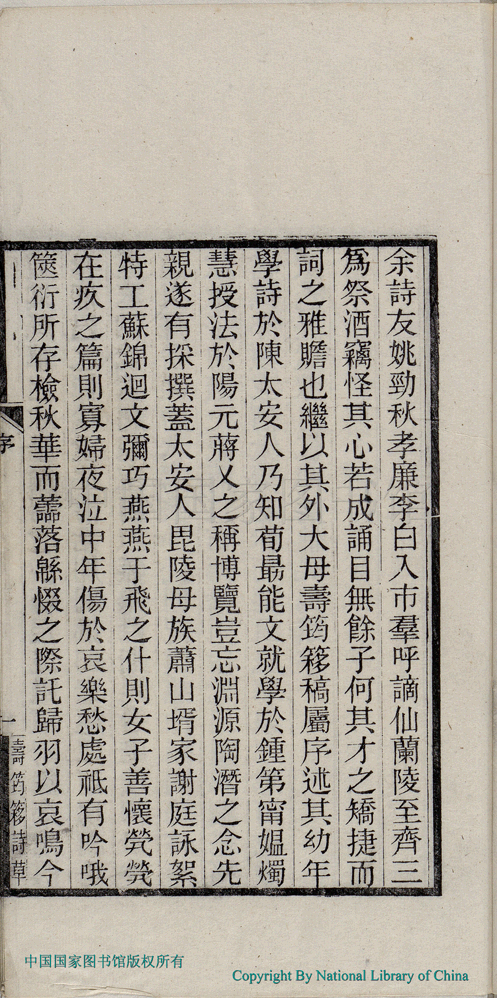 余詩友姚勁秋孝廉李白入市羣呼謫仙蘭陵至齊三
爲祭酒竊怪其心若成誦目無餘子何其才之矯捷而
詞之雅贍也繼以其外大母壽筠簃稿屬序述其幼年
學詩於陳太安人乃知荀最能文就學於鍾第甯媼燭
慧授法於陽元蔣乂之稱博覽豈忘淵源陶潛之念先
親遂有採撰蓋太安人毘陵母族蕭山壻家謝庭詠絮
特工蘇錦迴文彌巧燕燕于飛之什則女子善懷煢煢
在疚之篇則寡婦夜泣中年傷於哀樂愁處祗有吟哦
篋衍所存檢秋華而蘦落緜惙之際託歸羽以哀鳴今
序
一
壽筠簃詩草
中国国家图书馆版权所有
Copyright By National Library of China